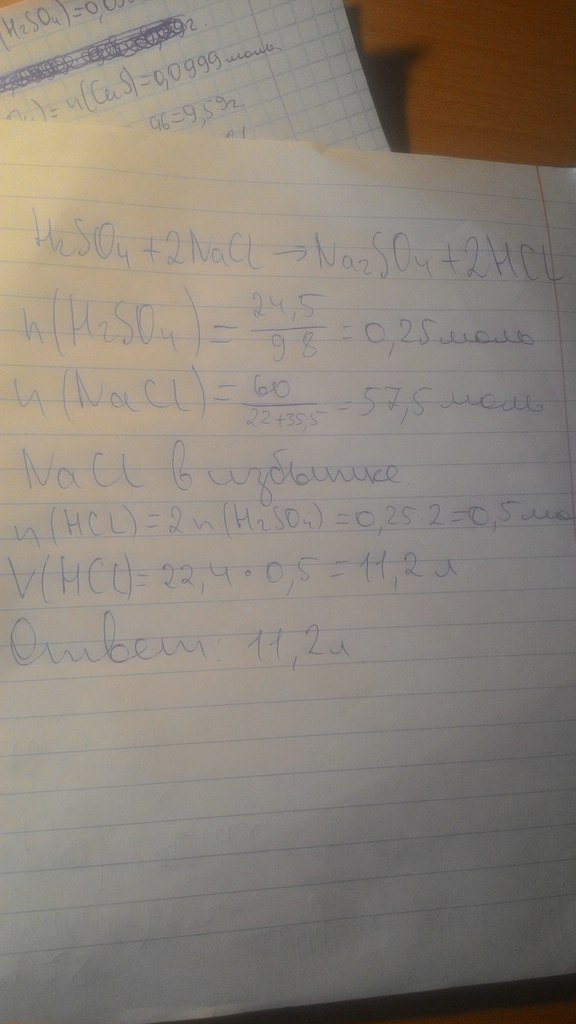 (H₂SO₄)=0,0
n(CuS)=0,0999 моль
96=9,59г
H₂SO₄+2NaCl→Na₂SO₄+2HCl
n(H₂SO₄)=24,5/98=0,25моль
n(NaCl)=60/22+35,5=57,5 моль
NaCl в избытке
n(HCL)=2n(H₂SO₄)=0,25 2=0,5мо
V(HCl)=22,4·0,5=11,2л
Ответ: 11,2л